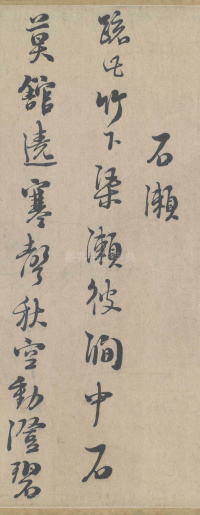 石瀨
疏此竹下渠瀨彼澗中石
莫館遶寒聲秋空動澄碧